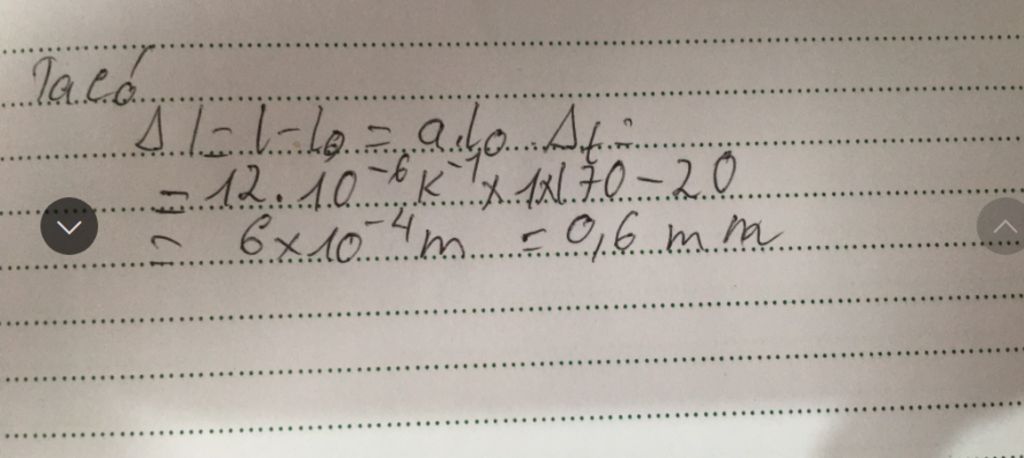 Ta có
Δl = l - l₀ = a.l₀.Δt =
= 12.10⁻⁶ K⁻¹ x 1x(70-20
= 6x10⁻⁴m = 0,6 mm